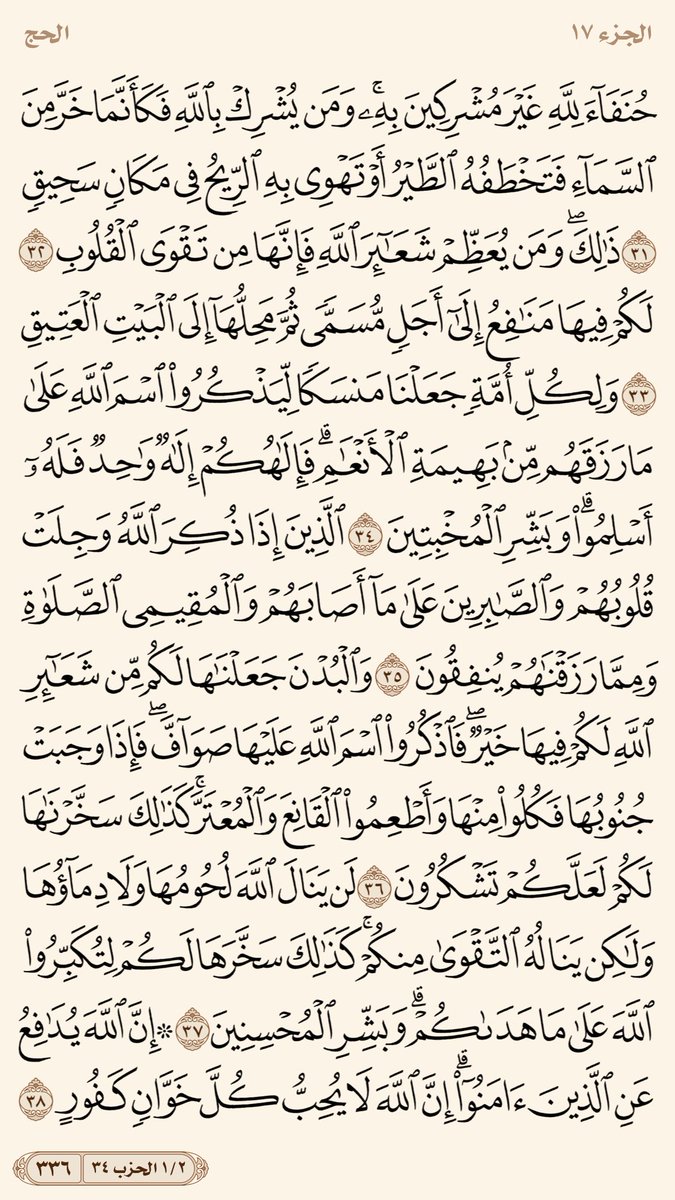 الجزء ١٧ الحج
حُنَفَآءَ لِلَّهِ غَيۡرَ مُشۡرِكِينَ بِهِۦۚ وَمَن يُشۡرِكۡ بِٱللَّهِ فَكَأَنَّمَا خَرَّ مِنَ
ٱلسَّمَآءِ فَتَخۡطَفُهُ ٱلطَّيۡرُ أَوۡ تَهۡوِي بِهِ ٱلرِّيحُ فِي مَكَانٖ سَحِيقٖ
٣١ ذَٰلِكَۖ وَمَن يُعَظِّمۡ شَعَٰٓئِرَ ٱللَّهِ فَإِنَّهَا مِن تَقۡوَى ٱلۡقُلُوبِ ٣٢
لَكُمۡ فِيهَا مَنَٰفِعُ إِلَىٰٓ أَجَلٖ مُّسَمّٗى ثُمَّ مَحِلُّهَآ إِلَى ٱلۡبَيۡتِ ٱلۡعَتِيقِ
٣٣ وَلِكُلِّ أُمَّةٖ جَعَلۡنَا مَنسَكٗا لِّيَذۡكُرُواْ ٱسۡمَ ٱللَّهِ عَلَىٰ
مَا رَزَقَهُم مِّنۢ بَهِيمَةِ ٱلۡأَنۡعَٰمِۗ فَإِلَٰهُكُمۡ إِلَٰهٞ وَٰحِدٞ فَلَهُۥٓ
أَسۡلِمُواْۗ وَبَشِّرِ ٱلۡمُخۡبِتِينَ ٣٤ ٱلَّذِينَ إِذَا ذُكِرَ ٱللَّهُ وَجِلَتۡ
قُلُوبُهُمۡ وَٱلصَّٰبِرِينَ عَلَىٰ مَآ أَصَابَهُمۡ وَٱلۡمُقِيمِي ٱلصَّلَوٰةِ
وَمِمَّا رَزَقۡنَٰهُمۡ يُنفِقُونَ ٣٥ وَٱلۡبُدۡنَ جَعَلۡنَٰهَا لَكُم مِّن شَعَٰٓئِرِ
ٱللَّهِ لَكُمۡ فِيهَا خَيۡرٞۖ فَٱذۡكُرُواْ ٱسۡمَ ٱللَّهِ عَلَيۡهَا صَوَآفَّۖ فَإِذَا وَجَبَتۡ
جُنُوبُهَا فَكُلُواْ مِنۡهَا وَأَطۡعِمُواْ ٱلۡقَانِعَ وَٱلۡمُعۡتَرَّۚ كَذَٰلِكَ سَخَّرۡنَٰهَا
لَكُمۡ لَعَلَّكُمۡ تَشۡكُرُونَ ٣٦ لَن يَنَالَ ٱللَّهَ لُحُومُهَا وَلَا دِمَآؤُهَا
وَلَٰكِن يَنَالُهُ ٱلتَّقۡوَىٰ مِنكُمۡۚ كَذَٰلِكَ سَخَّرَهَا لَكُمۡ لِتُكَبِّرُواْ
ٱللَّهَ عَلَىٰ مَا هَدَىٰكُمۡۗ وَبَشِّرِ ٱلۡمُحۡسِنِينَ ٣٧ ۞ إِنَّ ٱللَّهَ يُدَٰفِعُ
عَنِ ٱلَّذِينَ ءَامَنُوٓاْۗ إِنَّ ٱللَّهَ لَا يُحِبُّ كُلَّ خَوَّانٖ كَفُورٍ ٣٨
١/٢ الحزب ٣٤ ٣٣٦